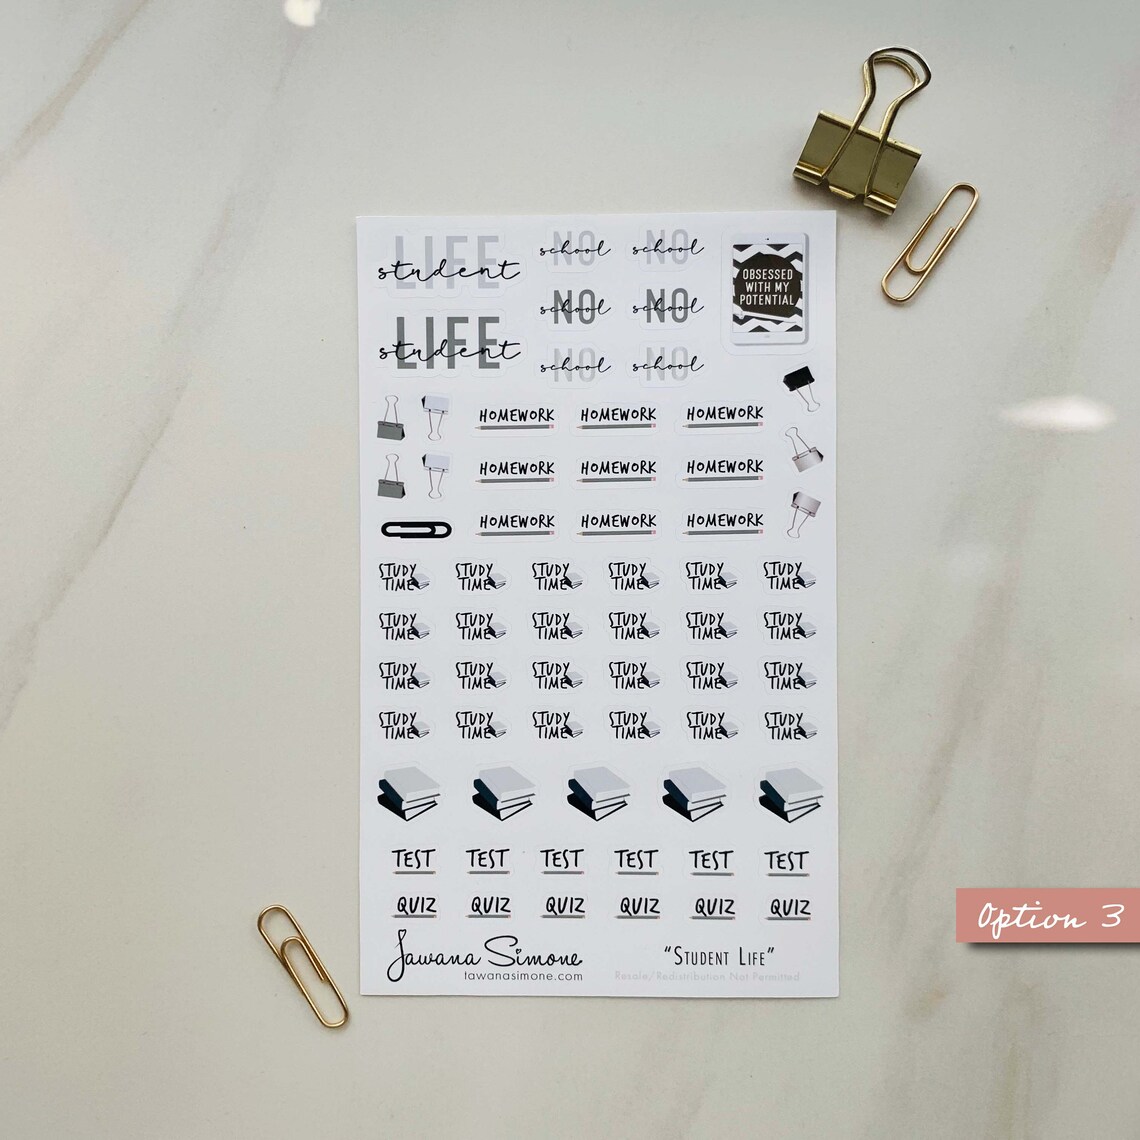 student LIFE
NO school
NO school
OBSESSED
WITH MY
POTENTIAL
student LIFE
NO school
NO school
NO school
NO school
HOMEWORK HOMEWORK HOMEWORK
HOMEWORK HOMEWORK HOMEWORK
HOMEWORK HOMEWORK HOMEWORK
STUDY STUDY STUDY STUDY STUDY STUDY
TIME TIME TIME TIME TIME TIME
STUDY STUDY STUDY STUDY STUDY STUDY
TIME TIME TIME TIME TIME TIME
STUDY STUDY STUDY STUDY STUDY STUDY
TIME TIME TIME TIME TIME TIME
STUDY STUDY STUDY STUDY STUDY STUDY
TIME TIME TIME TIME TIME TIME
TEST TEST TEST TEST TEST TEST
QUIZ QUIZ QUIZ QUIZ QUIZ QUIZ
Tawana Simone
tawanasimone.com
"STUDENT LIFE"
Resale/Redistribution Not Permitted
Option 3